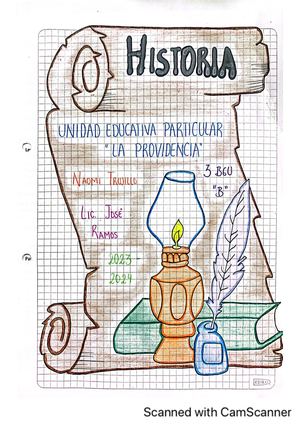 HISTORIA
UNIDAD EDUCATIVA PARTICULAR
"LA PROVIDENCIA"
NAOMI TRUJILLO
3 BGU
"B"
LIC. JOSÉ
RAMOS
2023
2024
Scanned with CamScanner